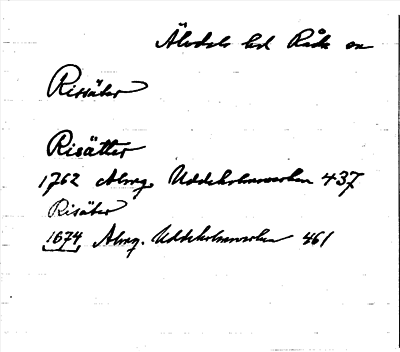 Älvdals hd Råda sn
Rissäter
Risätter
1762 Almg. Uddeholmsverken 437
Risäter
1674 Almg. Uddeholmsverken 461